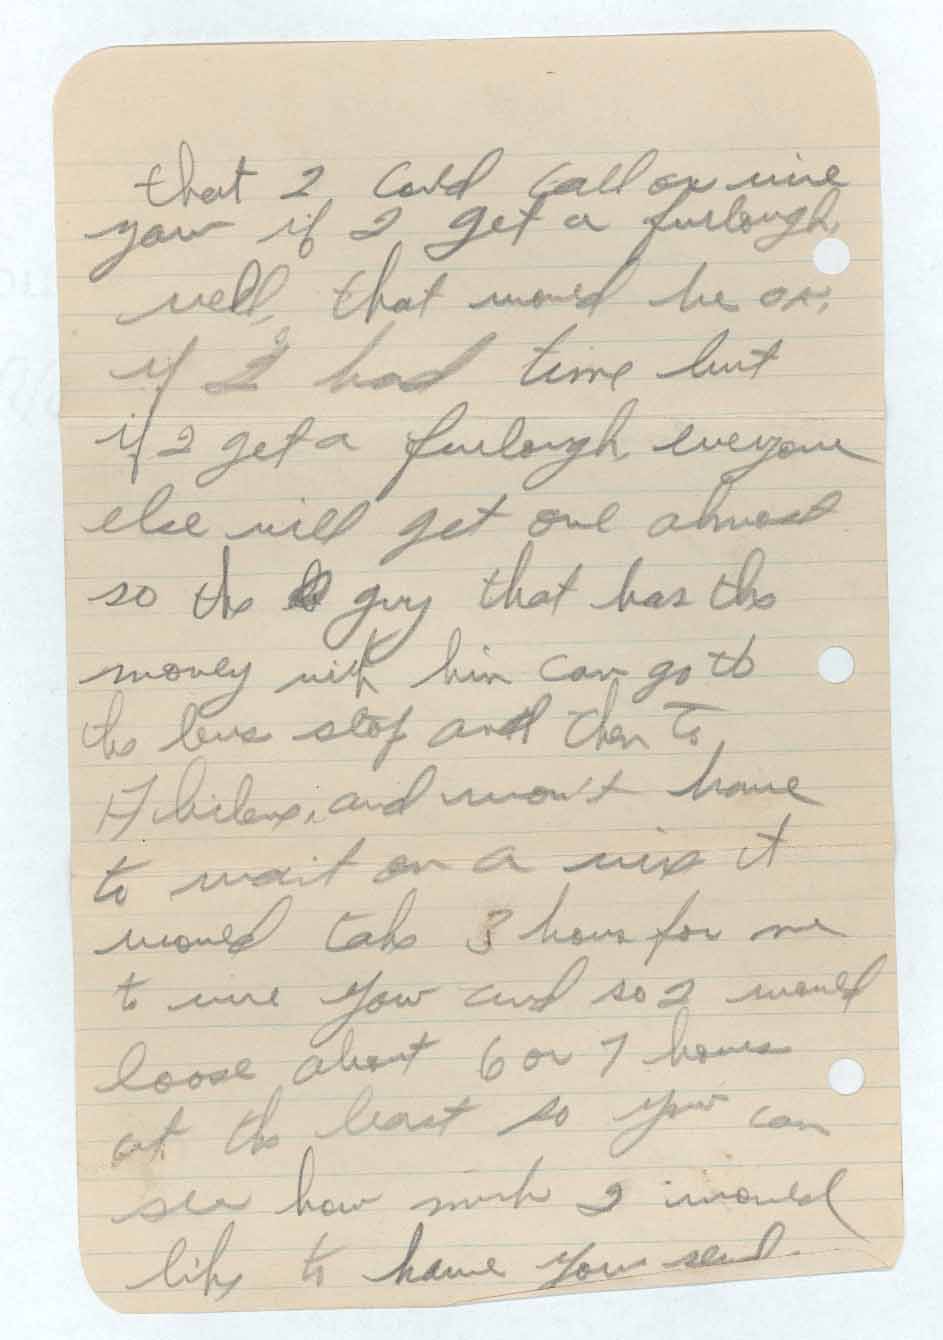 that I could call or wire
you if I get a furlough,
well, that would be OK,
if I had time but
if I get a furlough everyone
else will get one almost
so the guy that has the
money with him can go to
the bus stop and then to
Abilene, and won't have
to wait on a wire it
would take 3 hours for me
to wire you and so I would
loose about 6 or 7 hours
at the least so you can
see how much I would
like to have you send